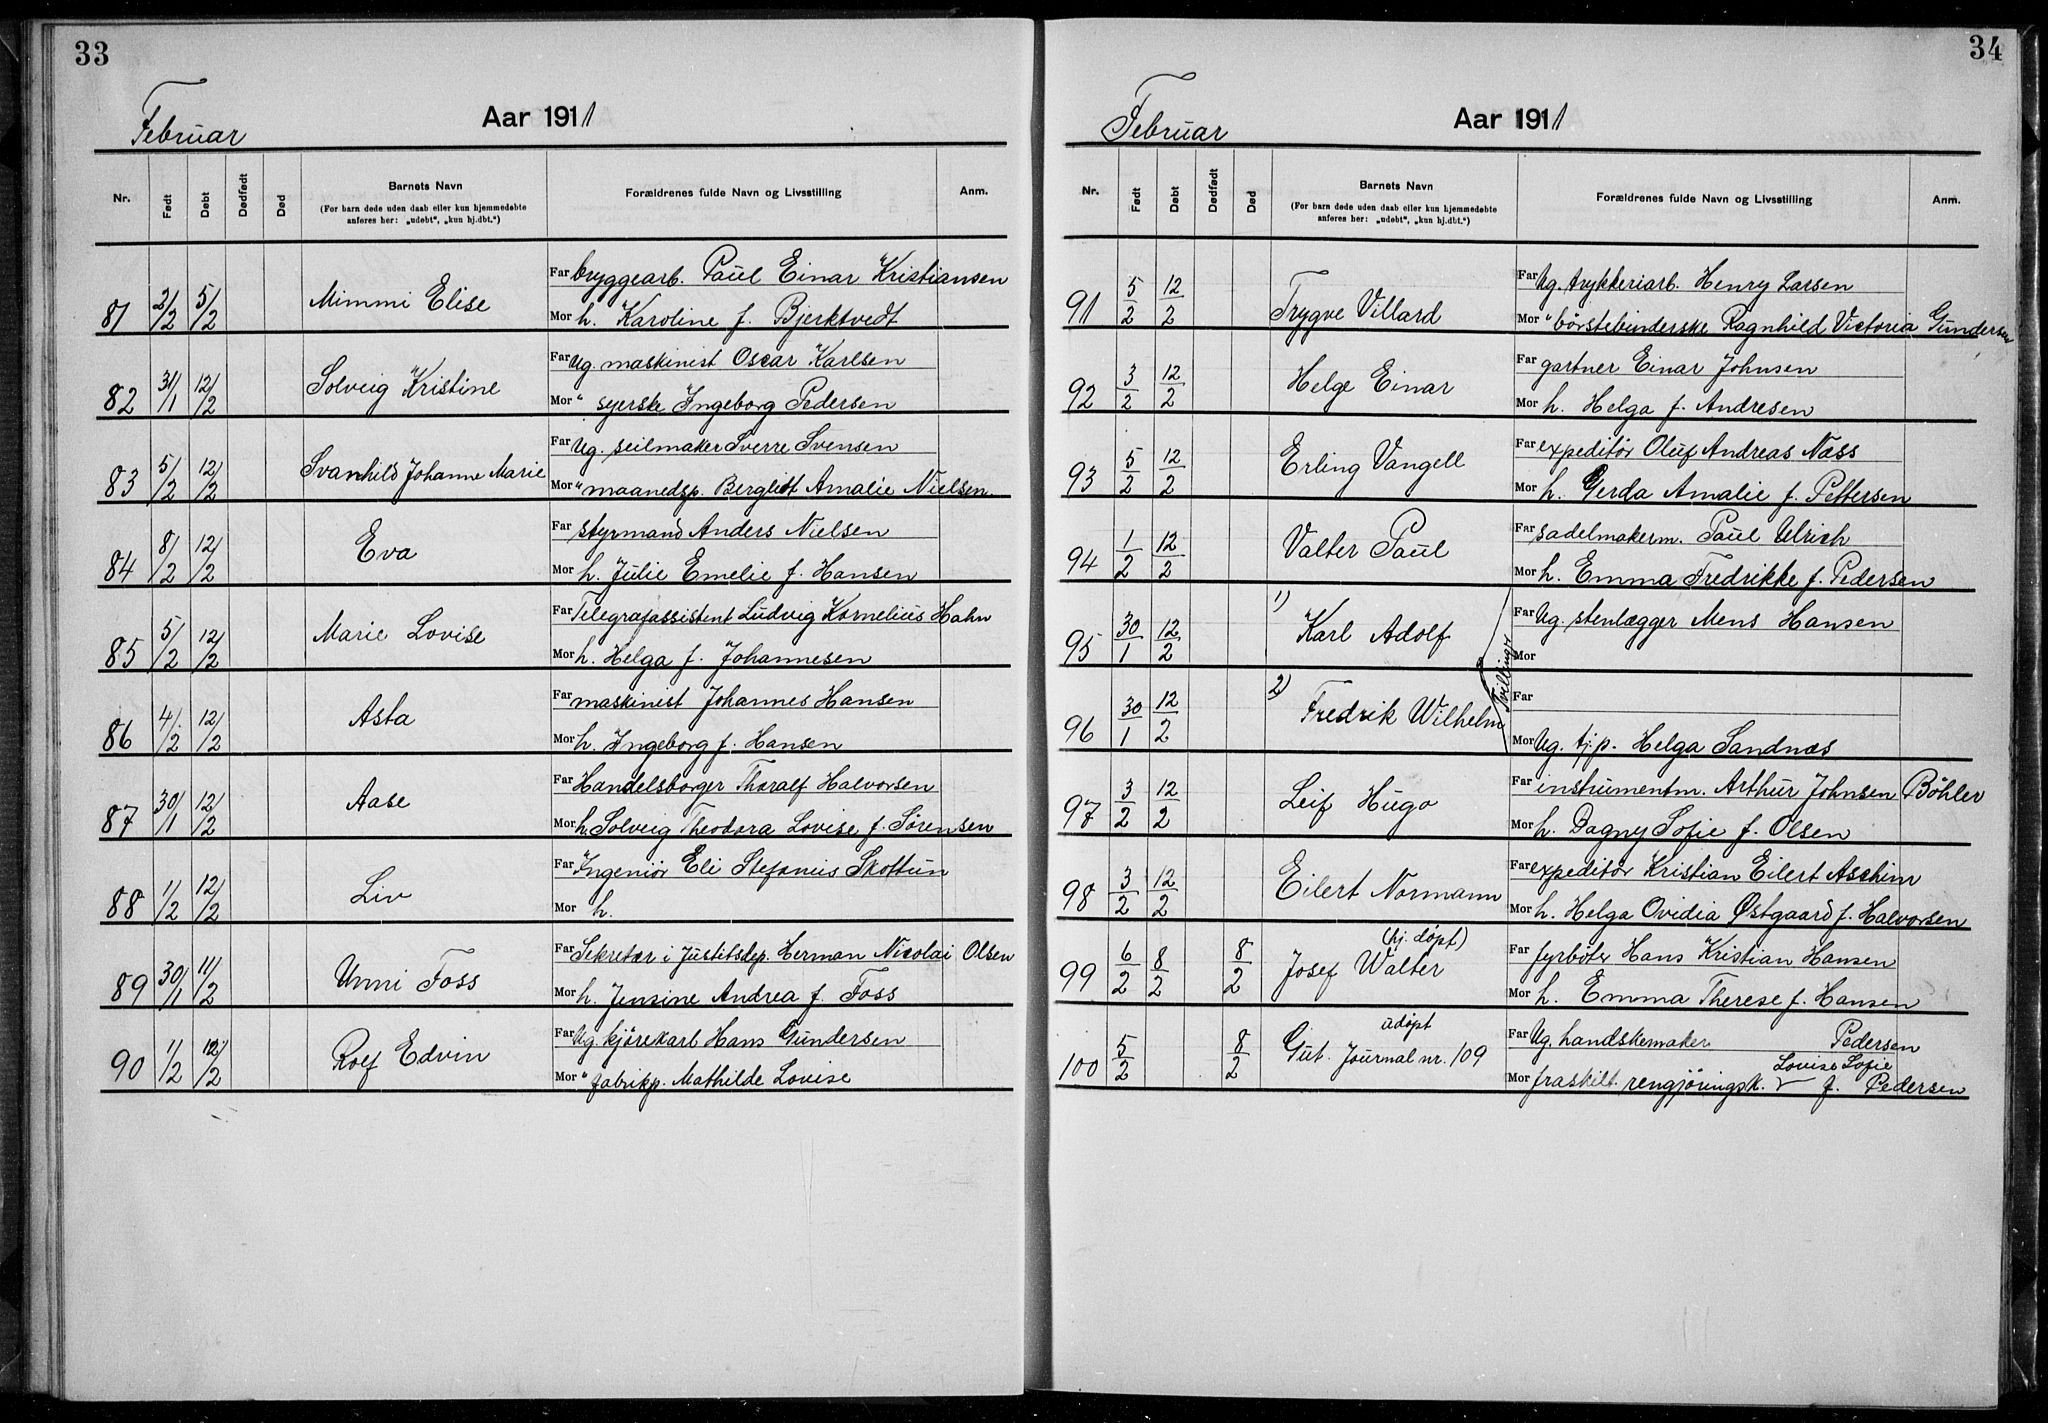 33
Februar Aar 1911
Nr. Født Døbt Dødfødt Død Barnets Navn Forældrenes fulde Navn og Livsstilling Anm.
(For barn døde uden daab eller kun hjemmedøbte
anføres her: „udøbt", „kun hj.dbt.")
Far bryggearb. Paul Einar Kristiansen
81 2/2 5/2 Mimmi Elise
Mor h. Karoline f. Bjerktvedt
Far Ug. maskinist Oscar Karlsen
82 31/1 12/2 Solveig Kristine
Mor " syerske Ingeborg Pedersen
Far Ug. seilmaker Sverre Svensen
83 5/2 12/2 Svanhild Johanne Marie
Mor " maanedsp. Bergliot Amalie Nielsen.
Far styrmand Anders Nielsen
84 8/2 12/2 Eva
Mor h. Julie Emelie f. Hansen
Far Telegrafassistent Ludvig Kornelius Hahn
85 5/2 12/2 Marie Lovise
Mor h. Helga f. Johannesen
Far maskinist Johannes Hansen
86 4/2 12/2 Asta
Mor h. Ingeborg f. Hansen
Far Handelsborger Thoralf Halvorsen
87 30/1 12/2 Aase
Mor h. Solveig Theodora Lovise f. Sørensen
Far Ingeniör Eli Stefanus Skottun
88 1/2 12/2 Liv
Mor h.
Far Sekretær i Justitsdep. Herman Nicolai Olsen
89 30/1 11/2 Unni Foss
Mor h. Jensine Andrea f. Foss
Far Ug. kjörekarl Hans Gundersen
90 1/2 12/2 Rolf Edvin
Mor " fabrikp. Mathilde Lovise
34
Februar Aar 1911
Nr. Født Døbt Dødfødt Død Barnets Navn Forældrenes fulde Navn og Livsstilling Anm.
(For barn døde uden daab eller kun hjemmedøbte
anføres her: „udøbt", „kun hj.dbt.")
Far Ug. trykkeriarb. Henry Larsen
91 5/2 12/2 Trygve Villard
Mor " börstebinderske Ragnhild Victoria Gundersen
Far gartner Einar Johnsen
92 3/2 12/2 Helge Einar
Mor h. Helga f. Andresen
Far expeditör Oluf Andreas Næss
93 5/2 12/2 Erling Vangell
Mor h. Gerda Amalie f. Pettersen
Far sadelmakerm. Paul Ulrich
94 1/2 12/2 Valter Paul
Mor h. Emma Fredrikke f. Pedersen
Far Ug. stenlægger Mens Hansen
95 30/1 12/2 1) Karl Adolf
Mor
Tvillinger
Far
96 30/1 12/2 2) Fredrik Wilhelm
Mor Ug. tj.p. Helga Sandnæs
Far instrumentm. Arthur Johnsen Böhler
97 3/2 12/2 Leif Hugo
Mor h. Dagny Sofie f. Olsen
Far expeditör Kristian Eilert Aschim
98 3/2 12/2 Eilert Normann
Mor h. Helga Ovidia Østgaard f. Halvorsen
(hj. döpt) Far fyrböter Hans Kristian Hansen
99 6/2 8/2 8/2 Josef Walter
Mor h. Emma Therese f. Hansen
udöpt Far Ug. handskemaker Pedersen
100 5/2 8/2 Gut. Journal nr. 109
Lovise Sofie
Mor fraskilt rengjöringsk. f. Pedersen